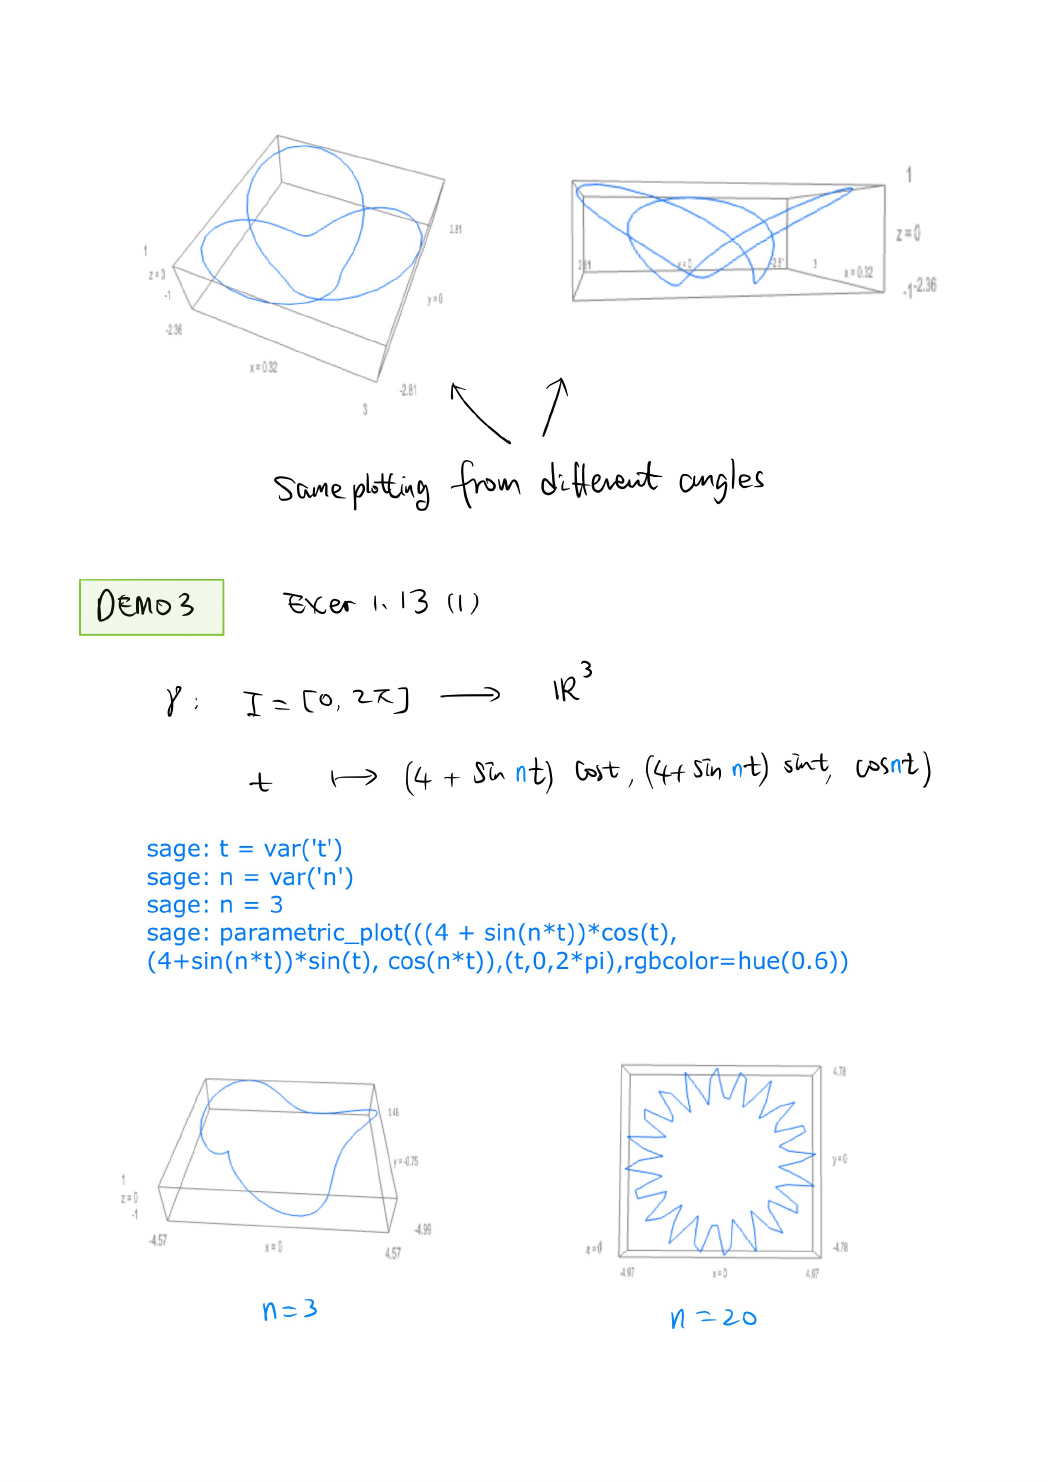 1
z=0
-1
-2.36
x=0.32
3
-2.81
y=0
2.81
1
z=0
-1
-2.36
x=0.32
3
Same plotting from different angles
DEMO 3 Exer 1.13 (1)
γ: I = [0, 2π] ⟶ ℝ³
t ⟼ (4 + sin nt) cost, (4+ sin nt) sint, cosnt)
sage: t = var('t')
sage: n = var('n')
sage: n = 3
sage: parametric_plot(((4 + sin(n*t))*cos(t),
(4+sin(n*t))*sin(t), cos(n*t)),(t,0,2*pi),rgbcolor=hue(0.6))
1
z=0
-1
-4.57
x=0
4.57
-4.99
y=-0.75
3.48
4.78
y=0
-4.78
z=0
-4.97
x=0
4.97
n=3
n=20